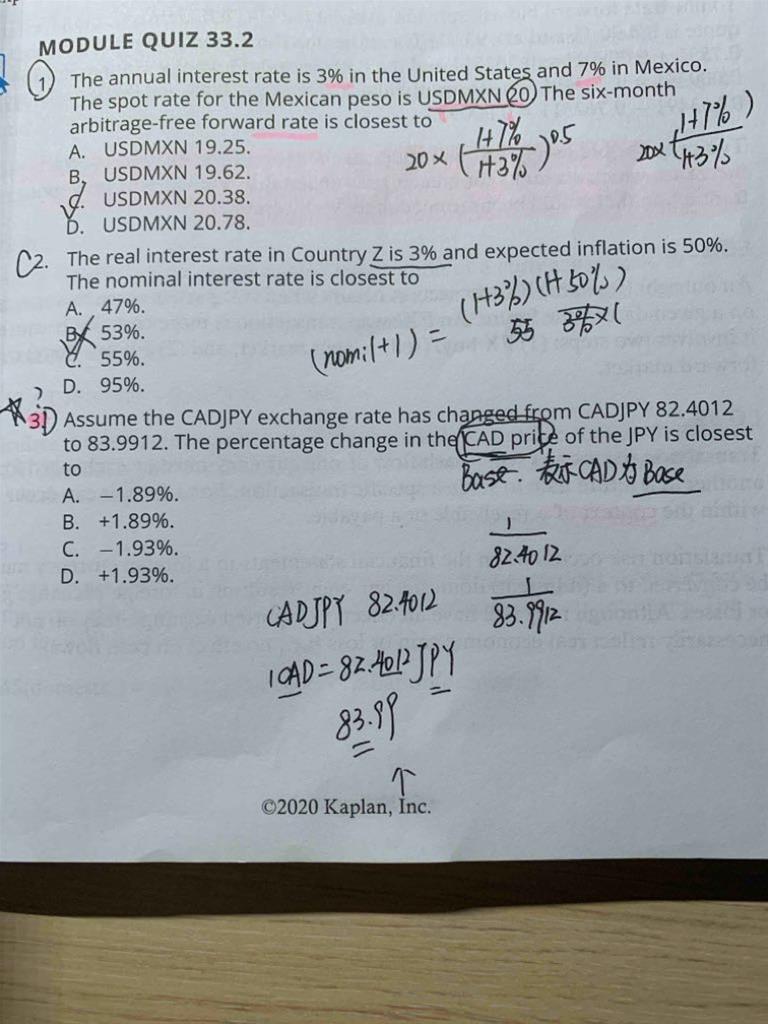 MODULE QUIZ 33.2
1. The annual interest rate is 3% in the United States and 7% in Mexico.
The spot rate for the Mexican peso is USDMXN 20. The six-month
arbitrage-free forward rate is closest to
A. USDMXN 19.25.
B. USDMXN 19.62.
C. USDMXN 20.38.
D. USDMXN 20.78.
20 × (1+7% / 1+3%)^0.5
20× (1+7% / 1+3%)
C 2. The real interest rate in Country Z is 3% and expected inflation is 50%.
The nominal interest rate is closest to
A. 47%.
B. 53%.
C. 55%.
D. 95%.
(nomil+1) = (1+3%)(1+50%)
55 3%×(
? 3. D Assume the CADJPY exchange rate has changed from CADJPY 82.4012
to 83.9912. The percentage change in the CAD price of the JPY is closest
to
A. −1.89%.
B. +1.89%.
C. −1.93%.
D. +1.93%.
Base. 表示CAD为Base
1 / 82.4012
1 / 83.9912
CADJPY 82.4012
1CAD = 82.4012 JPY
83.99
↑
©2020 Kaplan, Inc.